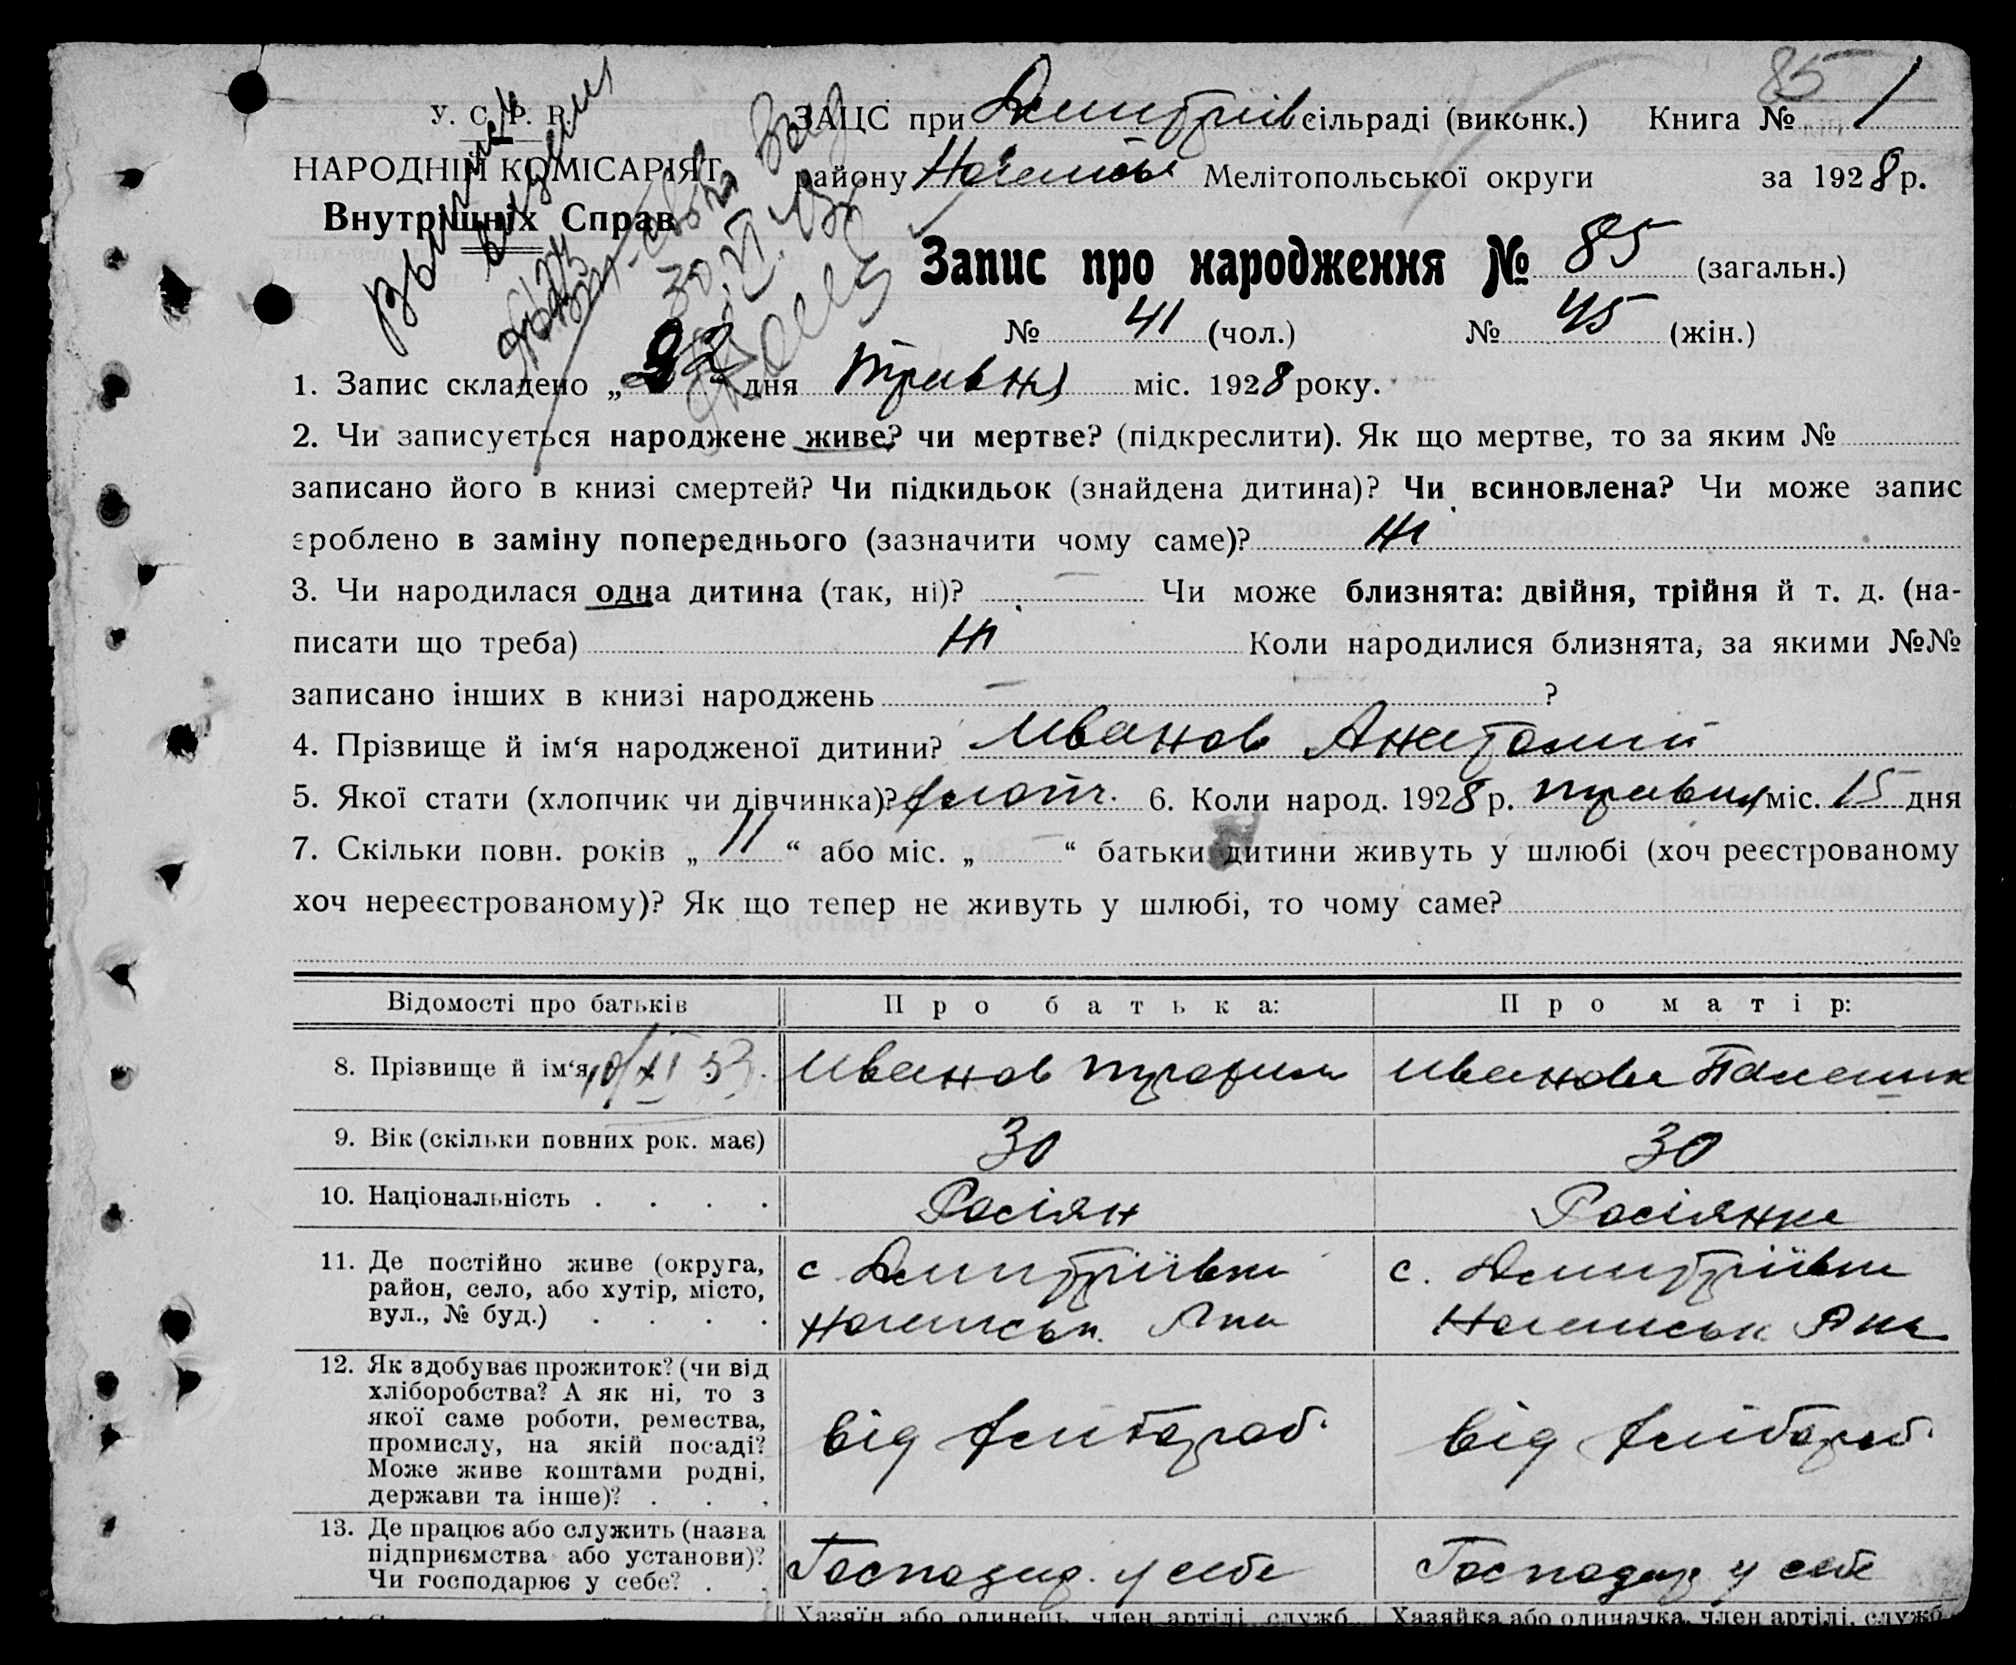 85
У. С. Р. Р.
ЗАЦС при Дмитрiiв сільраді (виконк.) Книга № 1
НАРОДНІЙ КОМІСАРІЯТ
району Мелітопольської округи за 1928 р.
Внутрішніх Справ
Запис про народження № 85 (загальн.)
№ 41 (чол.) № 45 (жін.)
1. Запис складено „22" дня травня міс. 1928 року.
2. Чи записується народжене живе? чи мертве? (підкреслити). Як що мертве, то за яким №
записано його в книзі смертей? Чи підкидьок (знайдена дитина)? Чи всиновлена? Чи може запис
зроблено в заміну попереднього (зазначити чому саме)? Ні
3. Чи народилася одна дитина (так, ні)? — Чи може близнята: двійня, трійня й т. д. (на-
писати що треба) Ні Коли народилися близнята, за якими №№
записано інших в книзі народжень — ?
4. Прізвище й ім‘я народженої дитини? Иванов Анатолий
5. Якої стати (хлопчик чи дівчинка)? хлопч. 6. Коли народ. 1928 р. травня міс. 15 дня
7. Скільки повн. років „ 11 “ або міс. „ — “ батьки дитини живуть у шлюбі (хоч реєстрованому
хоч нереєстрованому)? Як що тепер не живуть у шлюбі, то чому саме?
Відомості про батьків Про батька: Про матір:
8. Прізвище й ім‘я Иванов Трофим Иванова
9. Вік (скільки повних рок. має) 30 30
10. Національність . . . . Росіян Росіянка
11. Де постійно живе (округа, с Дмитріівка с. Дмитріївка
район, село, або хутір, місто,
вул., № буд.) . . . .
12. Як здобуває прожиток? (чи від
хліборобства? А як ні, то з
якої саме роботи, ремества, від хлібороб. від хлібороб.
промислу, на якій посаді?
Може живе коштами родні,
держави та інше)? . . .
13. Де працює або служить (назва
підприємства або установи)? Господар. у себе Господар у себе
Чи господарює у себе? . .
Хазяїн або одинець, член артілі, служб. Хазяйка або одиначка, член артілі, служб.